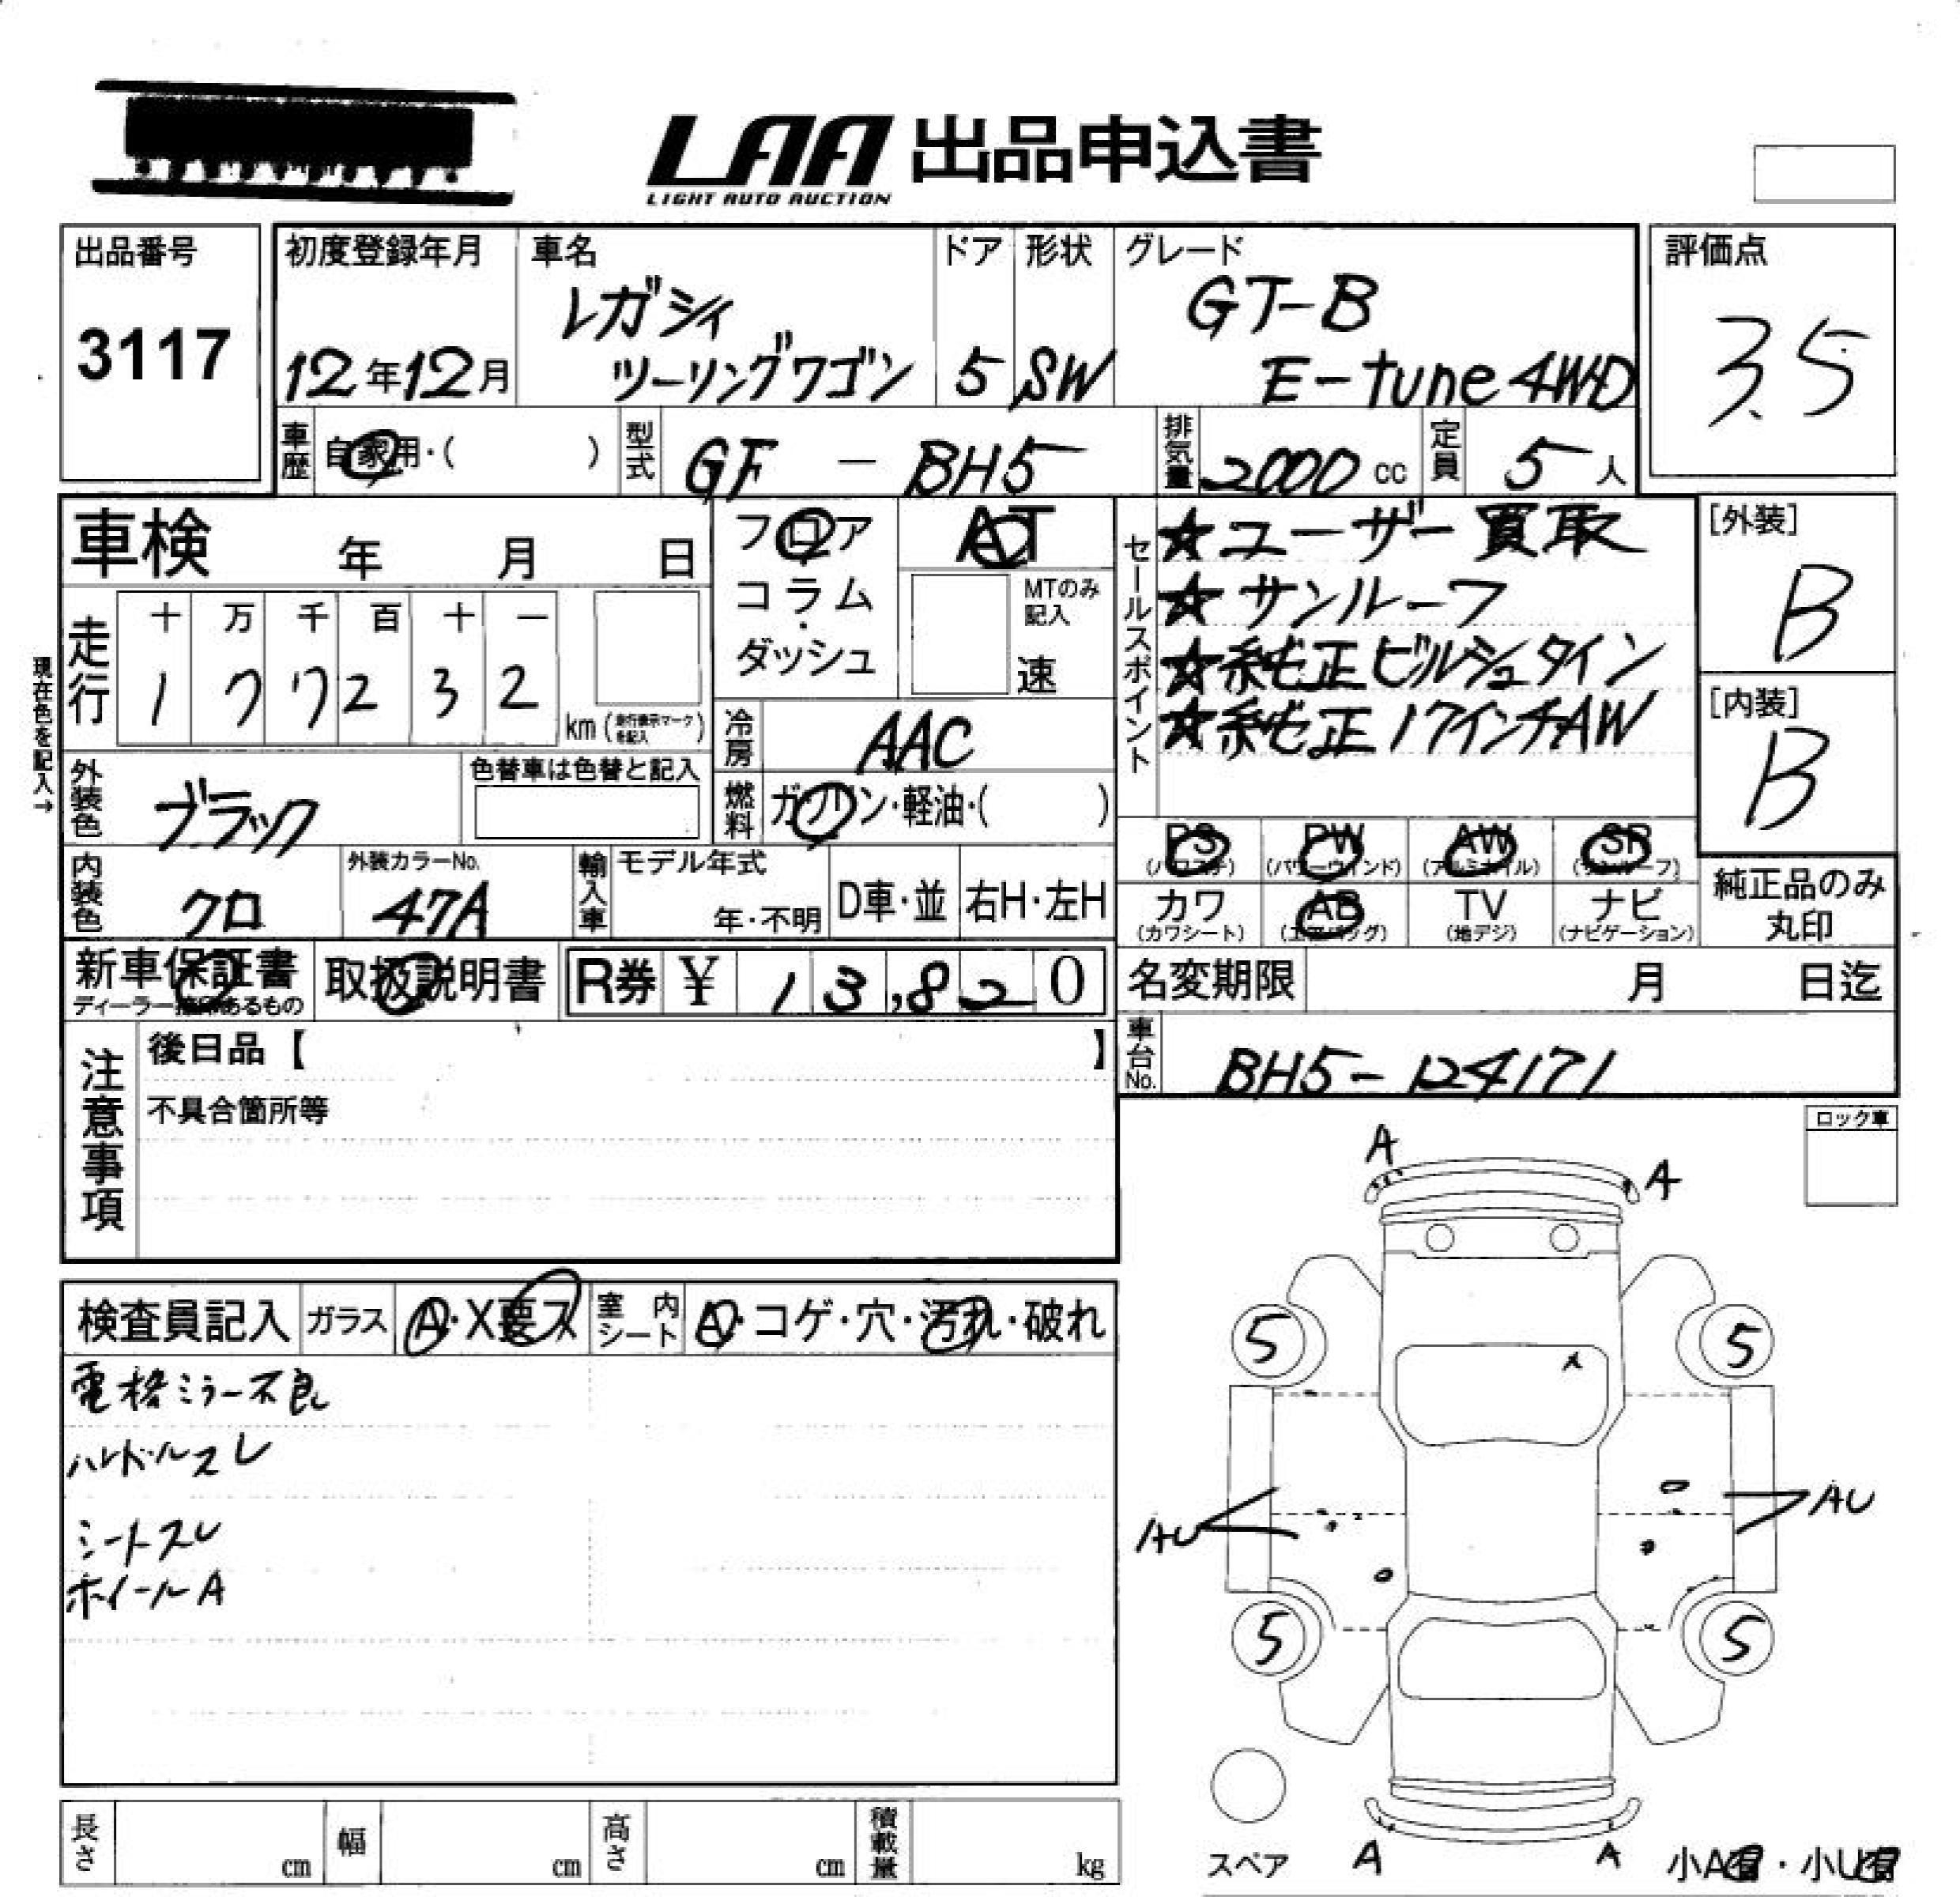 LAA 出品申込書
LIGHT AUTO AUCTION
出品番号
3117
初度登録年月
12年12月
車名
レガシィ
ツーリングワゴン
ドア
5
形状
SW
グレード
GT-B
E-tune 4WD
評価点
3.5
車歴
自家用・( )
型式
GF - BH5
排気量
2000 cc
定員
5人
車検 年 月 日
フロア
・
コラム
・
ダッシュ
AT
MTのみ
記入
速
セールスポイント
☆ユーザー買取
☆サンルーフ
☆純正ビルシュタイン
☆純正17インチAW
[外装]
B
[内装]
B
現在色を記入→
走行
十 万 千 百 十 一
1 7 7 2 3 2
km (走行表示マークを記入)
冷房
AAC
外装色
ブラック
色替車は色替と記入
燃料
ガソリン・軽油・( )
内装色
クロ
外装カラーNo.
47A
輸入車
モデル年式
年・不明
D車・並
右H・左H
PS
(パワステ)
PW
(パワーウィンド)
AW
(アルミホイル)
SR
(サンルーフ)
カワ
(カワシート)
AB
(エアバッグ)
TV
(地デジ)
ナビ
(ナビゲーション)
純正品のみ
丸印
新車保証書
ディーラー捺印あるもの
取扱説明書
R券 ¥ 13,820
名変期限 月 日迄
車台No.
BH5-124171
注意事項
後日品【 】
不具合箇所等
ロック車
検査員記入
ガラス
A・X要ス
室内シート
A・コゲ・穴・汚れ・破れ
電格ミラー不良
ハンドルスレ
シートスレ
ホイールA
A
A
5
5
AU
AU
5
5
スペア
A
A
小A有・小U有
長さ cm
幅 cm
高さ cm
積載量 kg